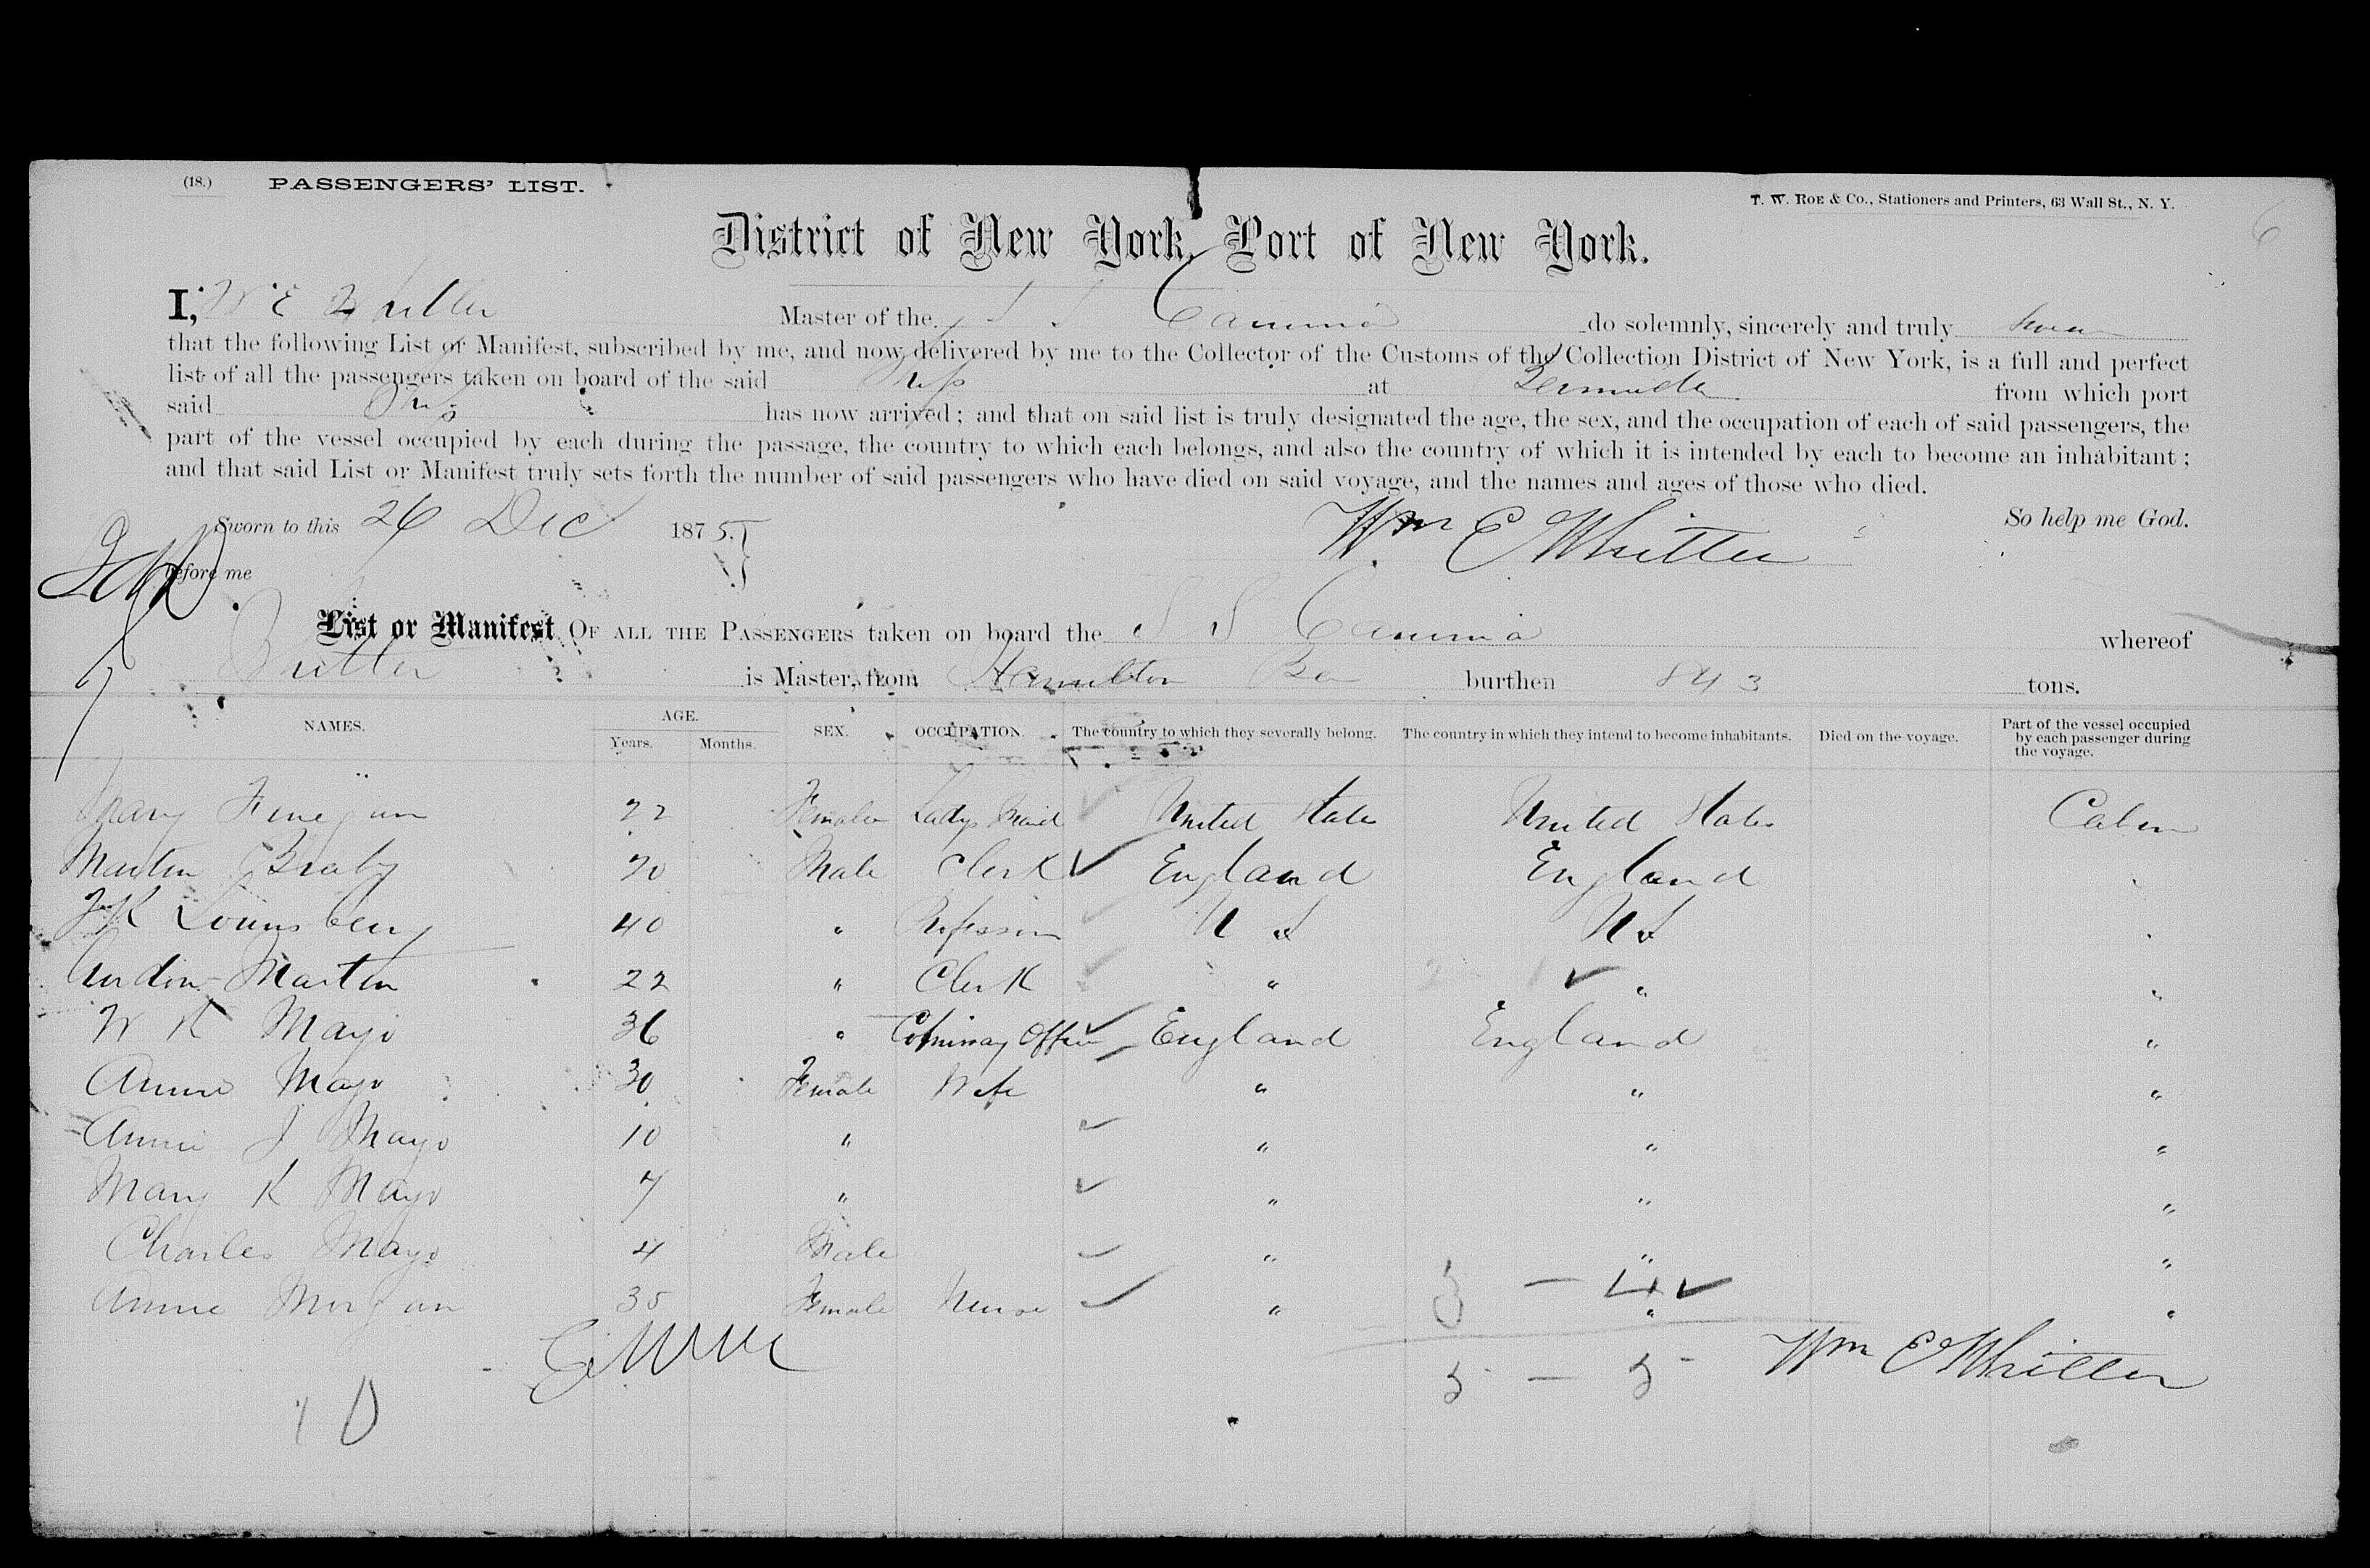 (18.) PASSENGERS' LIST.
T. W. ROE & Co., Stationers and Printers, 63 Wall St., N. Y.
6
District of New York, Port of New York.
I, W E Master of the S S Canima do solemnly, sincerely and truly Swear
that the following List or Manifest, subscribed by me, and now delivered by me to the Collector of the Customs of the Collection District of New York, is a full and perfect
list of all the passengers taken on board of the said Ship at Bermuda from which port
said Ship has now arrived; and that on said list is truly designated the age, the sex, and the occupation of each of said passengers, the
part of the vessel occupied by each during the passage, the country to which each belongs, and also the country of which it is intended by each to become an inhabitant;
and that said List or Manifest truly sets forth the number of said passengers who have died on said voyage, and the names and ages of those who died.
Sworn to this 26 Dec 1875. Wm E Whitter So help me God.
before me
List or Manifest OF ALL THE PASSENGERS taken on board the S S Canima whereof
is Master, from Hamilton Ba burthen 843 tons.
NAMES. AGE. Years. Months. SEX. OCCUPATION. The country to which they severally belong. The country in which they intend to become inhabitants. Died on the voyage. Part of the vessel occupied by each passenger during the voyage.
Mary Finegan 22 Female Ladys Maid United States United States Cabin
Martin 20 Male Clerk England England
J K Lounsbery 40 " Professor U S U S
Martin 22 " Clerk " " "
W K Mayo 36 " England England "
Annie Mayo 30 Female Wife " " "
Annie J Mayo 10 " " " "
Mary K Mayo 7 " " " "
Charles Mayo 4 Male " " "
Annie Morgan 35 Female Nurse " " "
3 — 4
5 — 5 Wm E Whitter
10